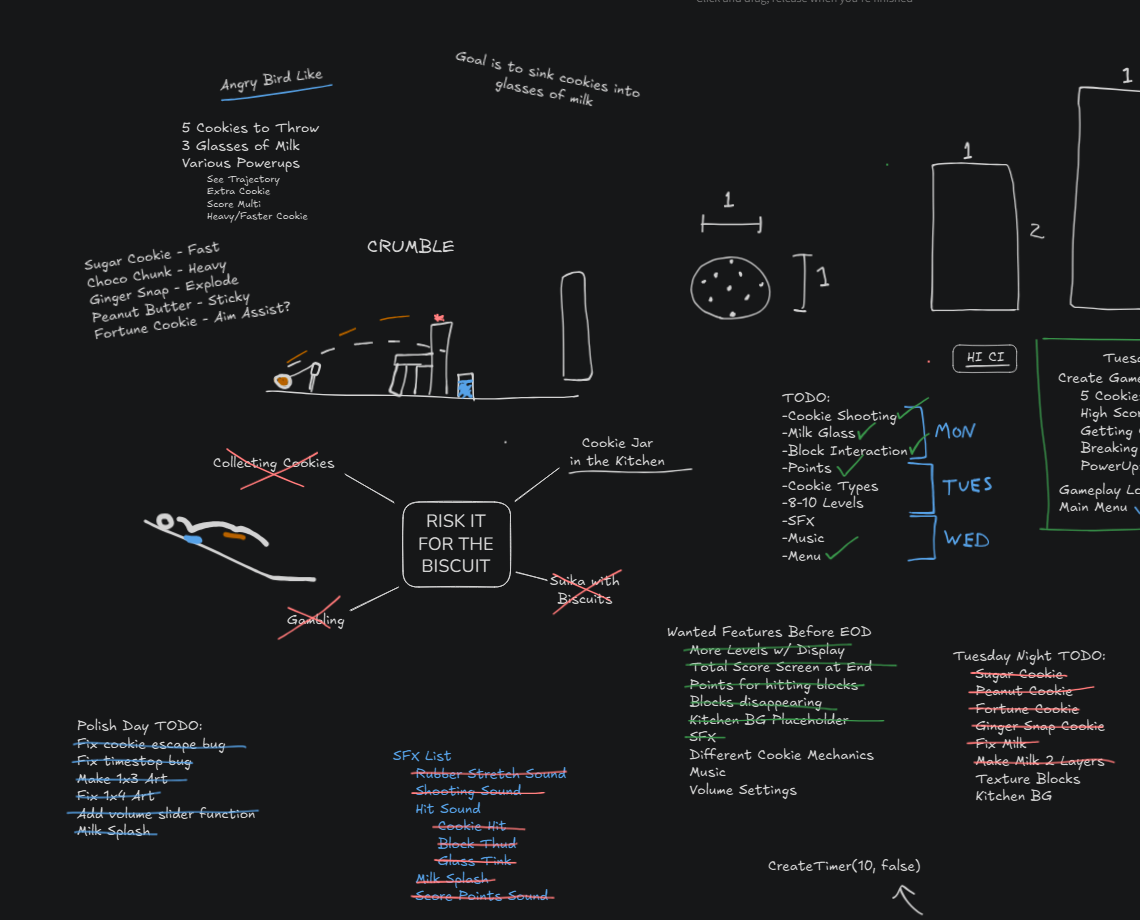 Click and drag, release when you're finished
Angry Bird Like
Goal is to sink cookies into
glasses of milk
5 Cookies to Throw
3 Glasses of Milk
Various Powerups
See Trajectory
Extra Cookie
Score Multi
Heavy/Faster Cookie
Sugar Cookie - Fast
Choco Chunk - Heavy
Ginger Snap - Explode
Peanut Butter - Sticky
Fortune Cookie - Aim Assist?
CRUMBLE
1
1
1
2
1
HI CI
TODO:
-Cookie Shooting
-Milk Glass
-Block Interaction
-Points
-Cookie Types
-8-10 Levels
-SFX
-Music
-Menu
MON
TUES
WED
Tuesd
Create Game
5 Cookie
High Scor
Getting
Breaking
PowerUp
Gameplay Lo
Main Menu
Collecting Cookies
Cookie Jar
in the Kitchen
RISK IT
FOR THE
BISCUIT
Gambling
Suika with
Biscuits
Wanted Features Before EOD
More Levels w/ Display
Total Score Screen at End
Points for hitting blocks
Blocks disappearing
Kitchen BG Placeholder
SFX
Different Cookie Mechanics
Music
Volume Settings
Tuesday Night TODO:
Sugar Cookie
Peanut Cookie
Fortune Cookie
Ginger Snap Cookie
Fix Milk
Make Milk 2 Layers
Texture Blocks
Kitchen BG
Polish Day TODO:
Fix cookie escape bug
Fix timestop bug
Make 1x3 Art
Fix 1x4 Art
Add volume slider function
Milk Splash
SFX List
Rubber Stretch Sound
Shooting Sound
Hit Sound
Cookie Hit
Block Thud
Glass Tink
Milk Splash
Score Points Sound
CreateTimer(10, false)